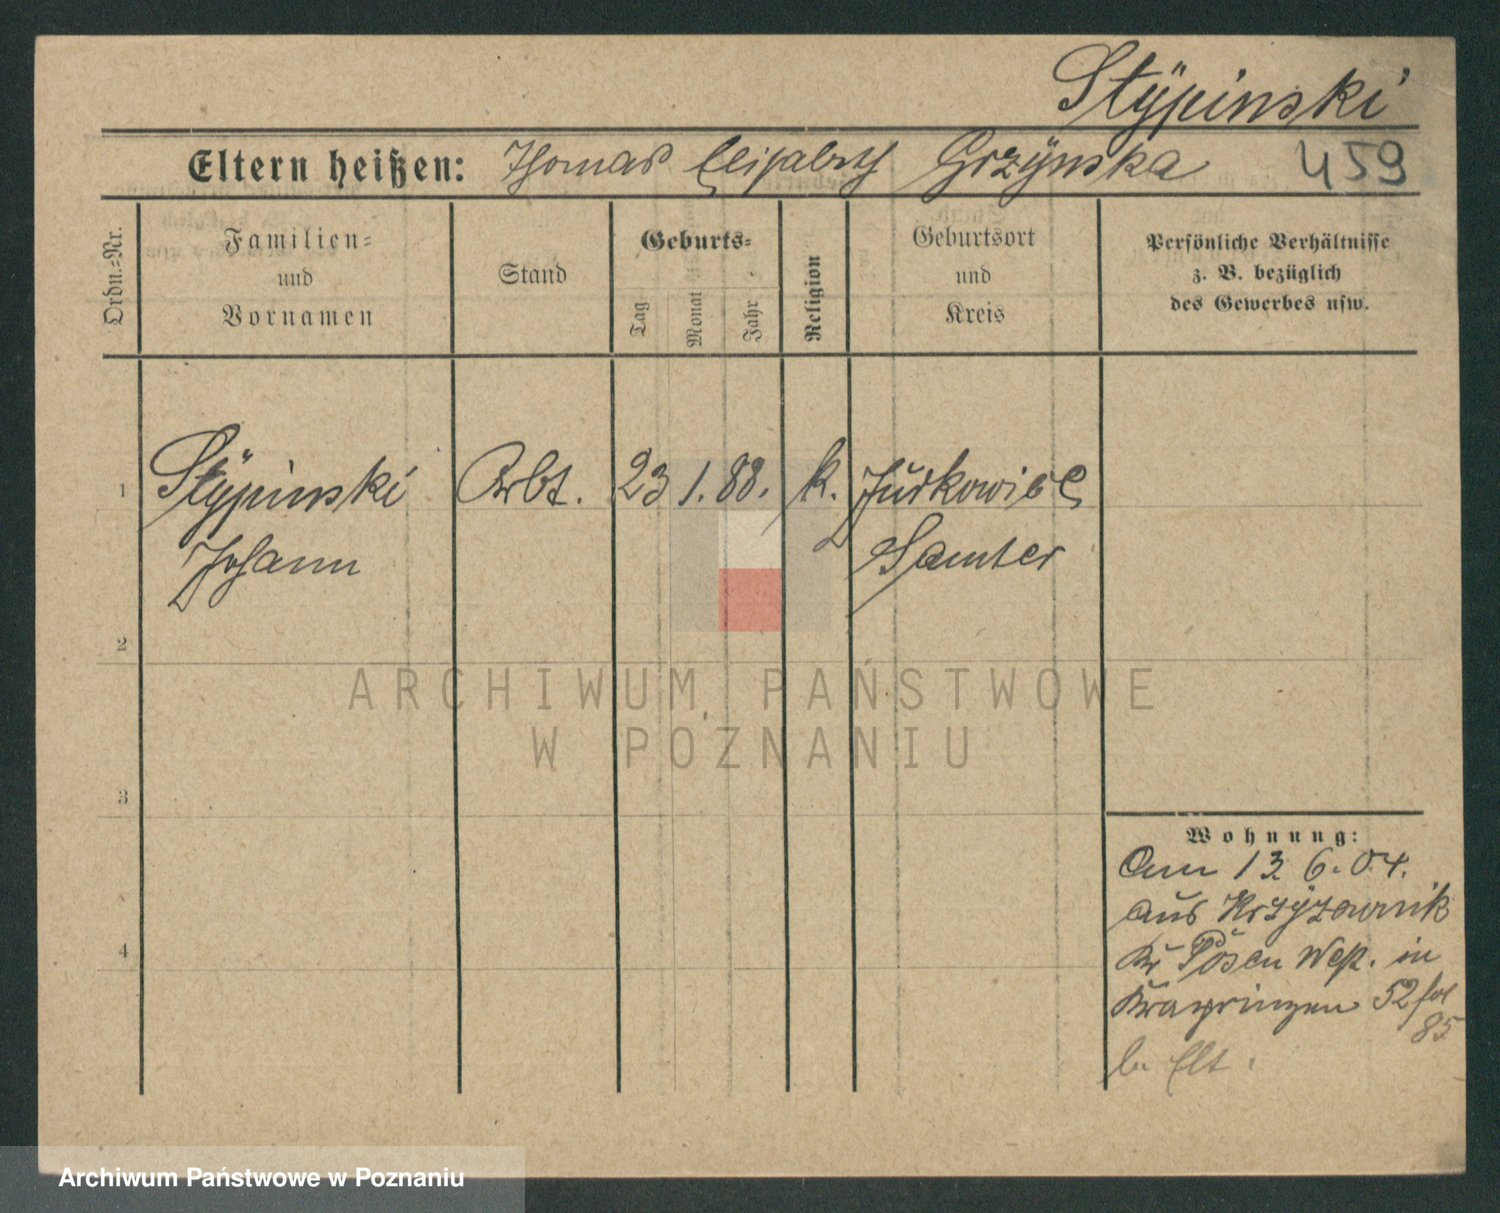 Stÿpinski
Eltern heißen: Thomas Elisabeth Grzÿnska 459
Ordn.=Nr.
Familien=
und
Vornamen
Stand
Geburts=
Tag
Monat
Jahr
Religion
Geburtsort
und
Kreis
Persönliche Verhältnisse
z. B. bezüglich
des Gewerbes usw.
1 Stÿpinski Arbt. 23 1. 88. k.
Johann Samter
2
ARCHIWUM PAŃSTWOWE
W POZNANIU
3
Wohnung:
Am 13 6. 04.
aus Krzÿzownik
Kr Posen West. in
52 fol
85
4
b. Elt.
Archiwum Państwowe w Poznaniu